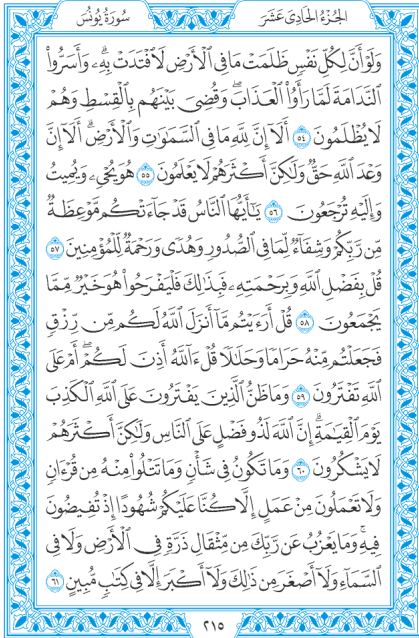 الجُزْءُ الحَادِي عَشَرَ
سُورَةُ يُونُسَ
وَلَوْ أَنَّ لِكُلِّ نَفْسٍ ظَلَمَتْ مَا فِي الْأَرْضِ لَافْتَدَتْ بِهِ ۗ وَأَسَرُّوا
النَّدَامَةَ لَمَّا رَأَوُا الْعَذَابَ ۖ وَقُضِيَ بَيْنَهُم بِالْقِسْطِ وَهُمْ
لَا يُظْلَمُونَ ٥٤ أَلَا إِنَّ لِلَّهِ مَا فِي السَّمَاوَاتِ وَالْأَرْضِ ۗ أَلَا إِنَّ
وَعْدَ اللَّهِ حَقٌّ وَلَٰكِنَّ أَكْثَرَهُمْ لَا يَعْلَمُونَ ٥٥ هُوَ يُحْيِي وَيُمِيتُ
وَإِلَيْهِ تُرْجَعُونَ ٥٦ يَا أَيُّهَا النَّاسُ قَدْ جَاءَتْكُم مَّوْعِظَةٌ
مِّن رَّبِّكُمْ وَشِفَاءٌ لِّمَا فِي الصُّدُورِ وَهُدًى وَرَحْمَةٌ لِّلْمُؤْمِنِينَ ٥٧
قُلْ بِفَضْلِ اللَّهِ وَبِرَحْمَتِهِ فَبِذَٰلِكَ فَلْيَفْرَحُوا هُوَ خَيْرٌ مِّمَّا
يَجْمَعُونَ ٥٨ قُلْ أَرَأَيْتُم مَّا أَنزَلَ اللَّهُ لَكُم مِّن رِّزْقٍ
فَجَعَلْتُم مِّنْهُ حَرَامًا وَحَلَالًا قُلْ آللَّهُ أَذِنَ لَكُمْ ۖ أَمْ عَلَى
اللَّهِ تَفْتَرُونَ ٥٩ وَمَا ظَنُّ الَّذِينَ يَفْتَرُونَ عَلَى اللَّهِ الْكَذِبَ
يَوْمَ الْقِيَامَةِ ۗ إِنَّ اللَّهَ لَذُو فَضْلٍ عَلَى النَّاسِ وَلَٰكِنَّ أَكْثَرَهُمْ
لَا يَشْكُرُونَ ٦٠ وَمَا تَكُونُ فِي شَأْنٍ وَمَا تَتْلُو مِنْهُ مِن قُرْآنٍ
وَلَا تَعْمَلُونَ مِنْ عَمَلٍ إِلَّا كُنَّا عَلَيْكُمْ شُهُودًا إِذْ تُفِيضُونَ
فِيهِ ۚ وَمَا يَعْزُبُ عَن رَّبِّكَ مِن مِّثْقَالِ ذَرَّةٍ فِي الْأَرْضِ وَلَا فِي
السَّمَاءِ وَلَا أَصْغَرَ مِن ذَٰلِكَ وَلَا أَكْبَرَ إِلَّا فِي كِتَابٍ مُّبِينٍ ٦١
٢١٥